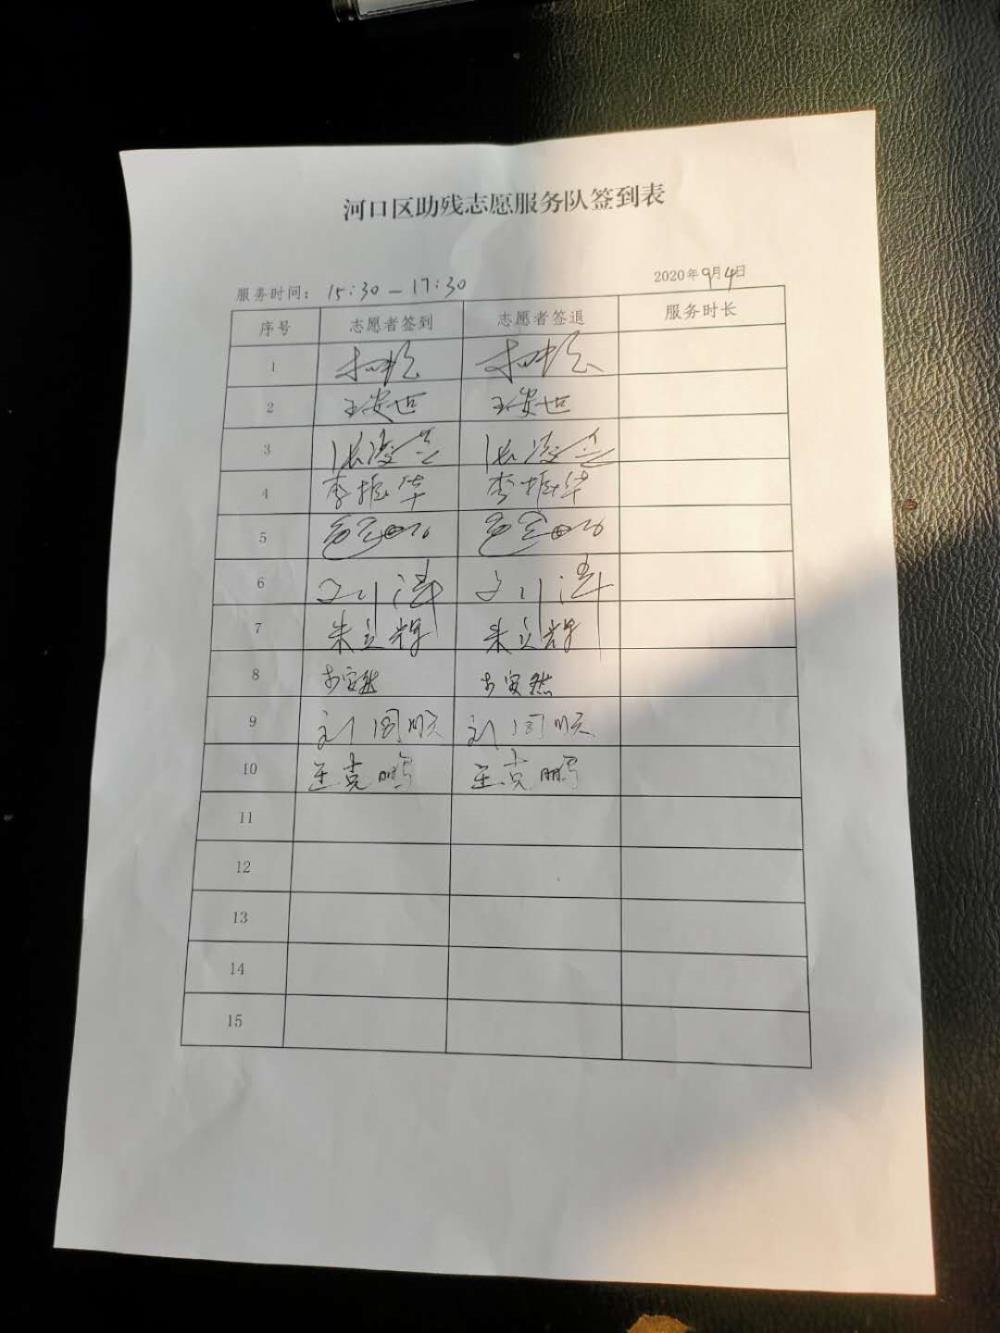 河口区助残志愿服务队签到表
服务时间：15:30—17:30 2020年9月4日
序号 志愿者签到 志愿者签退 服务时长
1
2 王安世 王安世
3
4 李振华 李振华
5
6 刘涛 刘涛
7 朱立辉 朱立辉
8
9 刘国顺 刘国顺
10 王克鹏 王克鹏
11
12
13
14
15